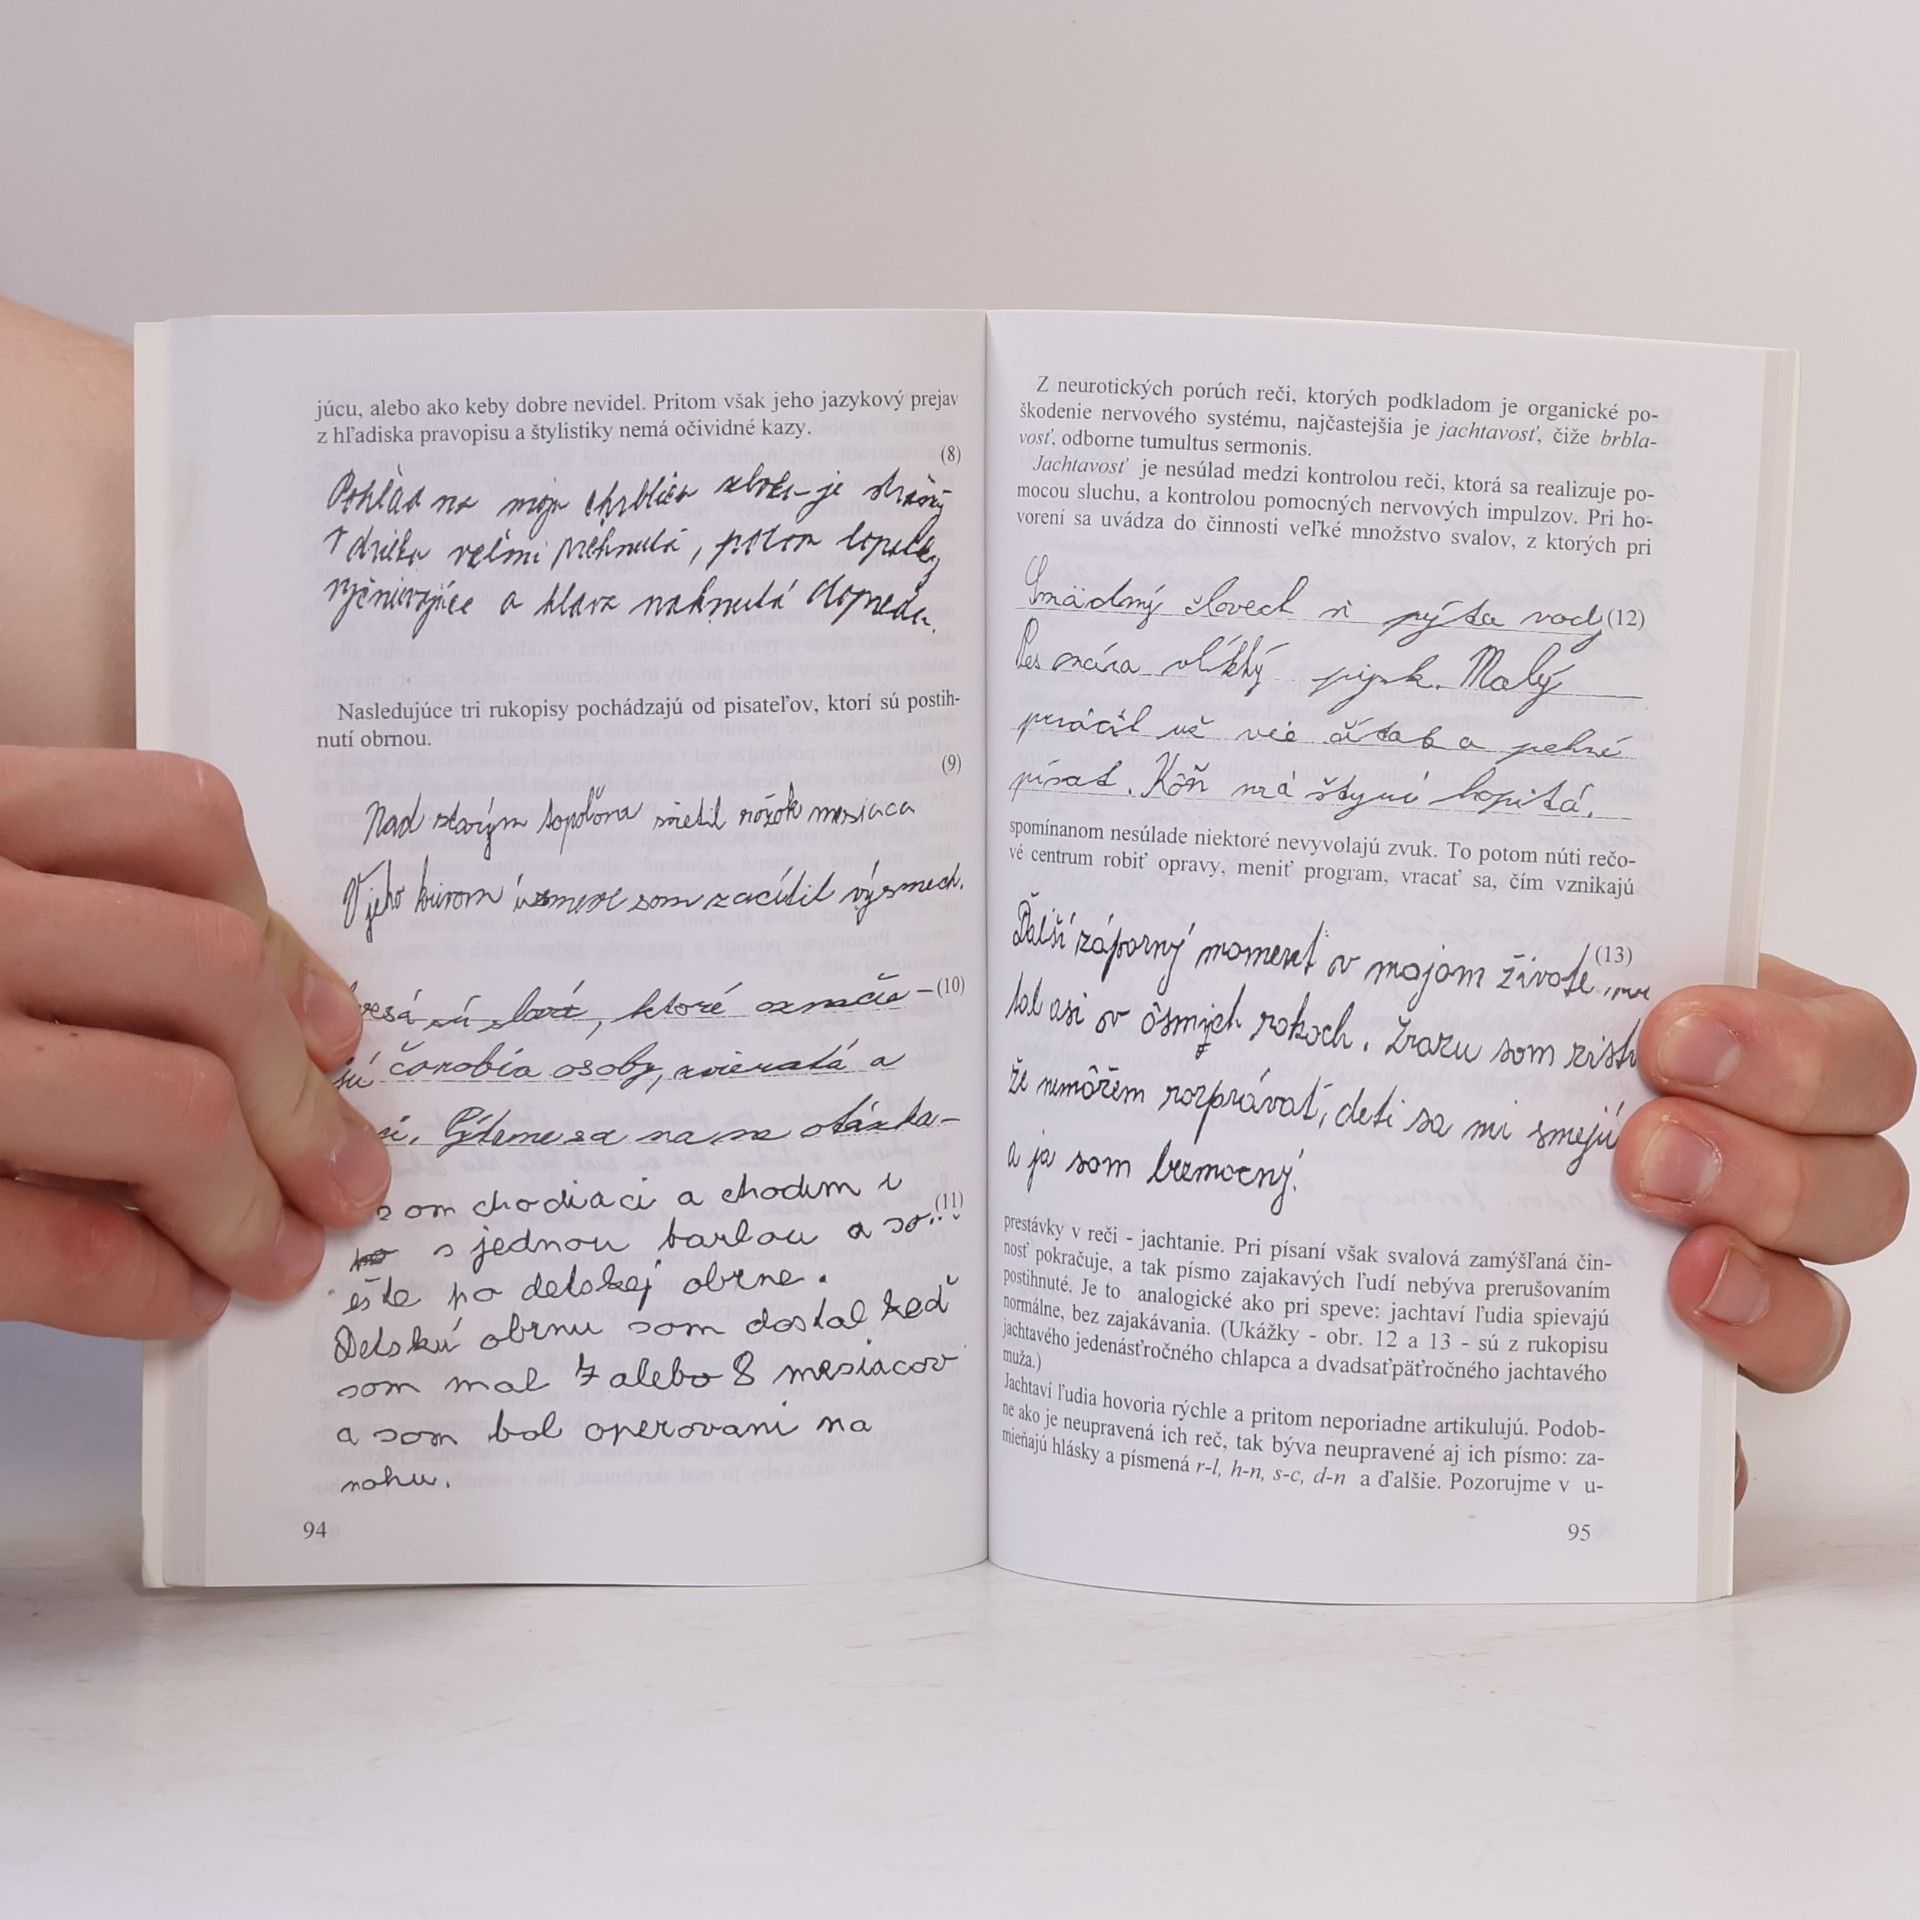 júcu, alebo ako keby dobre nevidel. Pritom však jeho jazykový prejav
z hľadiska pravopisu a štylistiky nemá očividné kazy.
(8)
Pohlad na moju chrbticu je strašný
veľmi prehnutá, potom lopatky
a hlava nahnutá dopredu.
Nasledujúce tri rukopisy pochádzajú od pisateľov, ktorí sú postih-
nutí obrnou.
(9)
Nad starým topoľom svietil rôžok mesiaca
V jeho krivom úsmeve som zacítil výsmech.
sú slová, ktoré označu– (10)
jú osoby, zvieratá a
Pýtame sa na ne otázka–
som chodiaci a chodim i
(11)
s jednou barlou a so
ešte po detskej obrne.
Detskú obrnu som dostal keď
som mal 7 alebo 8 mesiacov
a som bol operovani na
nohu.
94
Z neurotických porúch reči, ktorých podkladom je organické po-
škodenie nervového systému, najčastejšia je jachtavosť, čiže brbla-
vosť, odborne tumultus sermonis.
Jachtavosť je nesúlad medzi kontrolou reči, ktorá sa realizuje po-
mocou sluchu, a kontrolou pomocných nervových impulzov. Pri ho-
vorení sa uvádza do činnosti veľké množstvo svalov, z ktorých pri
Smädný človech si pýta vody (12)
Pes Malý
už vie a pekné
písat. Kôň má štyri kopitá.
spomínanom nesúlade niektoré nevyvolajú zvuk. To potom núti rečo-
vé centrum robiť opravy, meniť program, vracať sa, čím vznikajú
Ďalší záporný moment v mojom živote (13)
tal asi v ôsmych rokoch. Zrazu som zisti
že nemôžem rozprávať, deti sa mi smejú
a ja som bezmocný.
prestávky v reči - jachtanie. Pri písaní však svalová zamýšľaná čin-
nosť pokračuje, a tak písmo zajakavých ľudí nebýva prerušovaním
postihnuté. Je to analogické ako pri speve: jachtaví ľudia spievajú
normálne, bez zajakávania. (Ukážky - obr. 12 a 13 - sú z rukopisu
jachtavého jedenásťročného chlapca a dvadsaťpäťročného jachtavého
muža.)
Jachtaví ľudia hovoria rýchle a pritom neporiadne artikulujú. Podob-
ne ako je neupravená ich reč, tak býva neupravené aj ich písmo: za-
mieňajú hlásky a písmená r-l, h-n, s-c, d-n a ďalšie. Pozorujme v u-
95